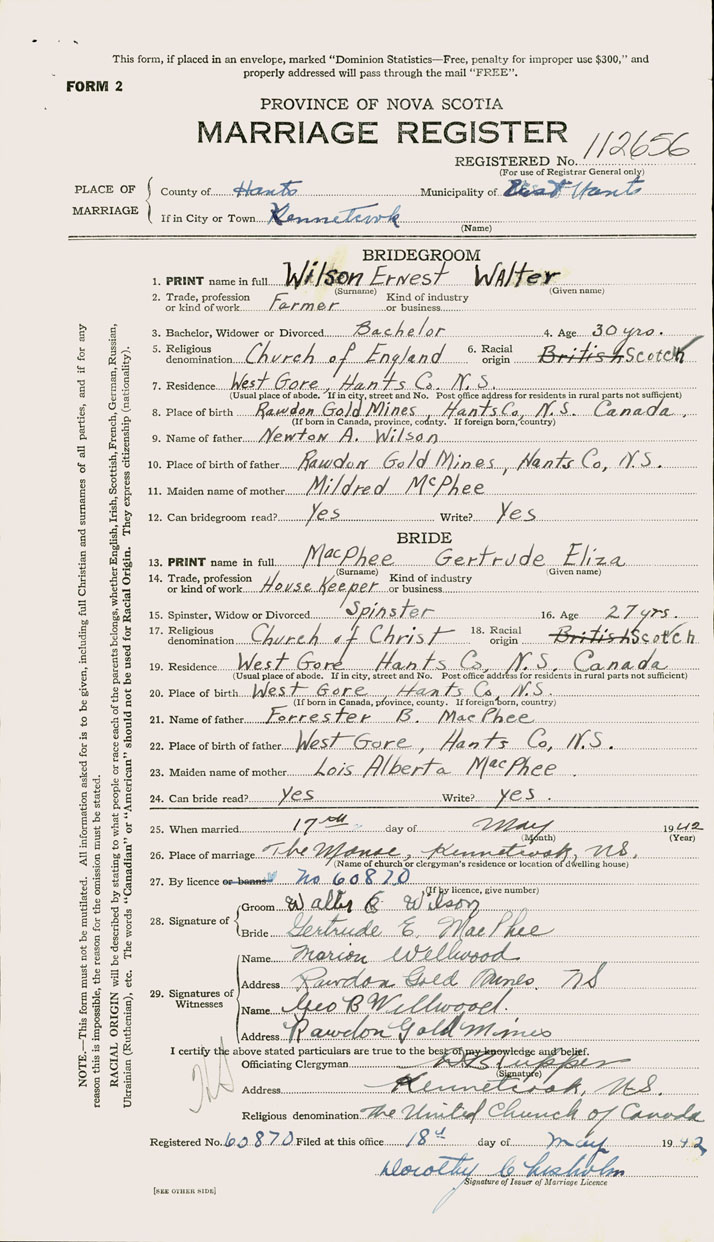 This form, if placed in an envelope, marked "Dominion Statistics—Free, penalty for improper use $300," and
properly addressed will pass through the mail "FREE".
FORM 2
PROVINCE OF NOVA SCOTIA
MARRIAGE REGISTER
REGISTERED No. 112656
(For use of Registrar General only)
PLACE OF MARRIAGE
County of Hants Municipality of East Hants
If in City or Town Kennetcook
(Name)
BRIDEGROOM
1. PRINT name in full Wilson Ernest Walter
(Surname) (Given name)
2. Trade, profession or kind of work Farmer Kind of industry or business
3. Bachelor, Widower or Divorced Bachelor 4. Age 30 yrs.
5. Religious denomination Church of England 6. Racial origin British Scotch
7. Residence West Gore, Hants Co. N.S.
(Usual place of abode. If in city, street and No. Post office address for residents in rural parts not sufficient)
8. Place of birth Rawdon Gold Mines, Hants Co, N.S. Canada.
(If born in Canada, province, county. If foreign born, country)
9. Name of father Newton A. Wilson
10. Place of birth of father Rawdon Gold Mines, Hants Co, N.S.
11. Maiden name of mother Mildred McPhee
12. Can bridegroom read? Yes Write? Yes
BRIDE
13. PRINT name in full MacPhee Gertrude Eliza
(Surname) (Given name)
14. Trade, profession or kind of work House Keeper Kind of industry or business
15. Spinster, Widow or Divorced Spinster 16. Age 27 yrs.
17. Religious denomination Church of Christ 18. Racial origin British Scotch
19. Residence West Gore Hants Co, N.S, Canada
(Usual place of abode. If in city, street and No. Post office address for residents in rural parts not sufficient)
20. Place of birth West Gore, Hants Co, N.S.
(If born in Canada, province, county. If foreign born, country)
21. Name of father Forrester B. MacPhee
22. Place of birth of father West Gore, Hants Co, N.S.
23. Maiden name of mother Lois Alberta MacPhee.
24. Can bride read? Yes Write? Yes.
25. When married 17th day of May 1942
(Month) (Year)
26. Place of marriage The Manse, Kennetcook, N.S.
(Name of church or clergyman's residence or location of dwelling house)
27. By licence or banns No 60870
(If by licence, give number)
28. Signature of
Groom Walter E Wilson
Bride Gertrude E. MacPhee
29. Signatures of Witnesses
Name Marion Wellwood
Address Rawdon Gold Mines. NS
Name Geo B Wellwood.
Address Rawdon Gold Mines
I certify the above stated particulars are true to the best of my knowledge and belief.
Officiating Clergyman Tupper
(Signature)
Address Kennetcook, N.S.
Religious denomination The United Church of Canada
Registered No. 60870 Filed at this office 18th day of May 1942
Dorothy Chisholm
Signature of Issuer of Marriage Licence
[SEE OTHER SIDE]
NOTE.—This form must not be mutilated. All information asked for is to be given, including full Christian and surnames of all parties, and if for any
reason this is impossible, the reason for the omission must be stated.
RACIAL ORIGIN will be described by stating to what people or race each of the parents belongs, whether English, Irish, Scottish, French, German, Russian,
Ukrainian (Ruthenian), etc. The words "Canadian" or "American" should not be used for Racial Origin. They express citizenship (nationality).